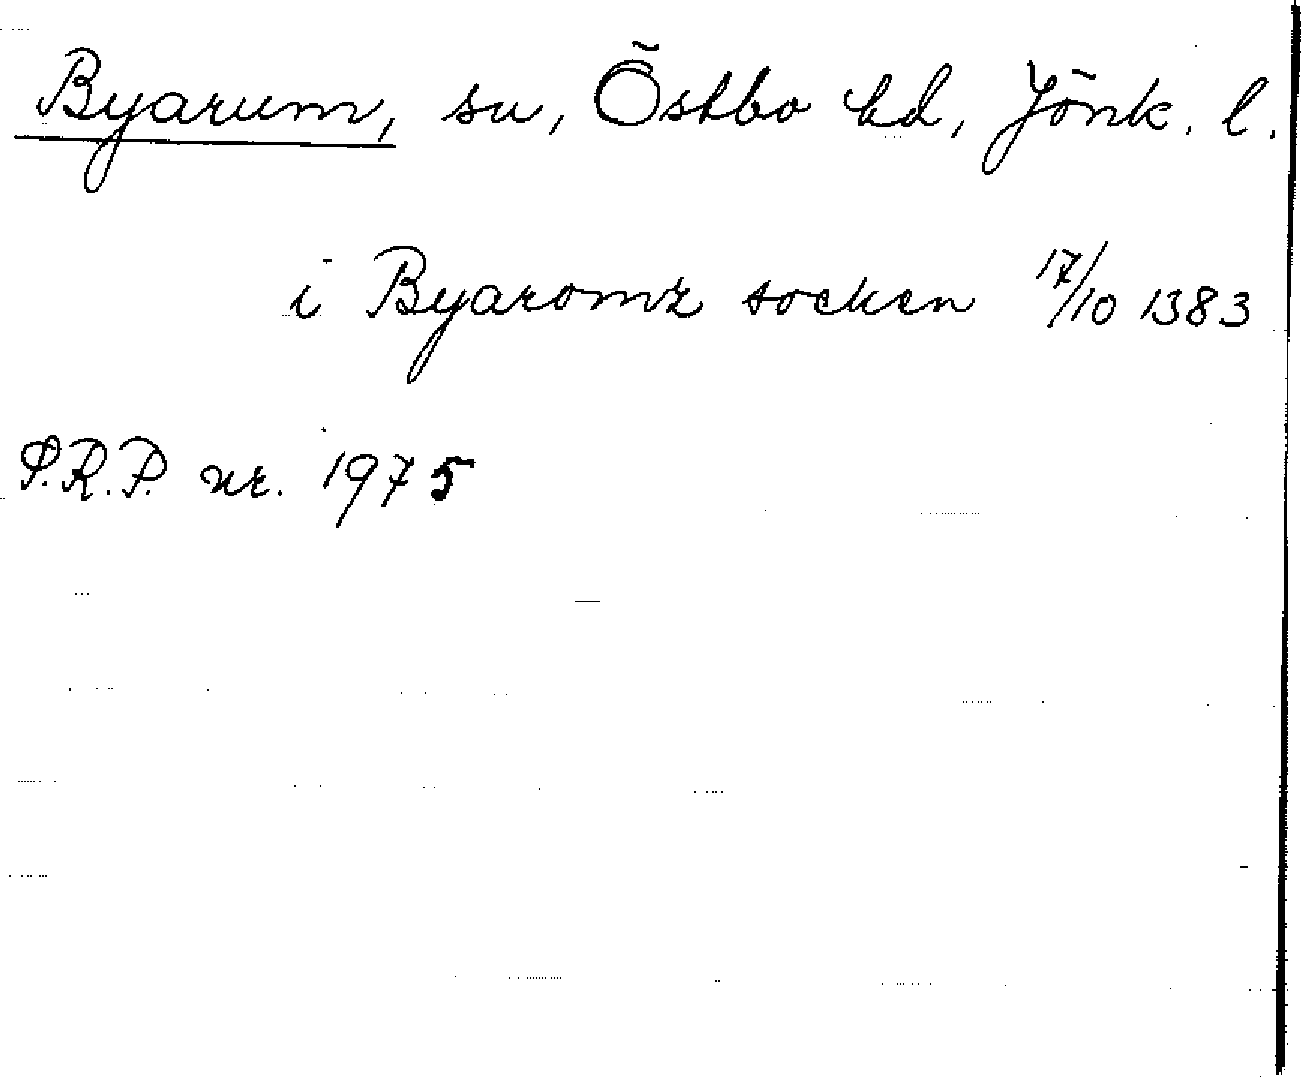 Byarum, sn, Östbo hd, Jönk. l.
i Byaromz socken 17/10 1383
S.R.P. nr. 1975